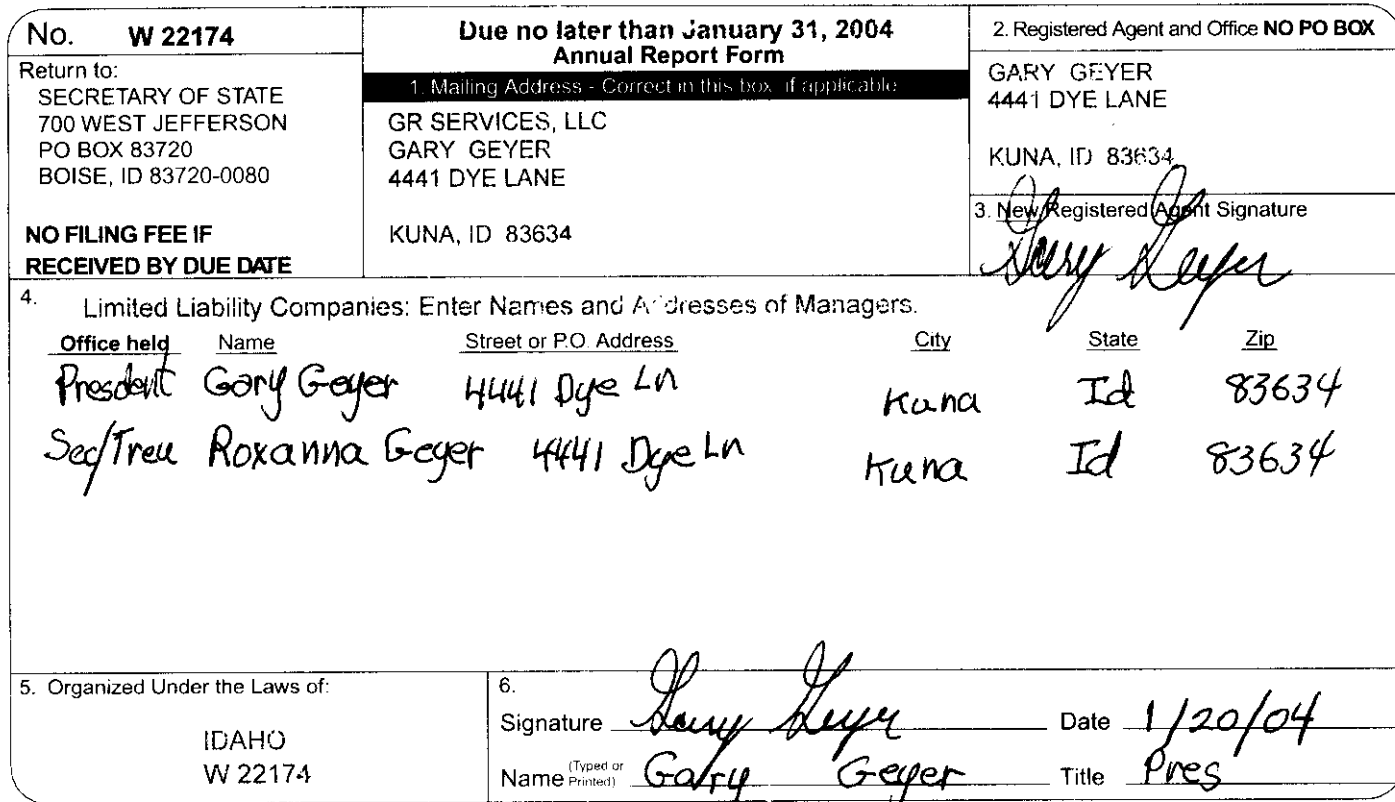 No. W 22174
Return to:
SECRETARY OF STATE
700 WEST JEFFERSON
PO BOX 83720
BOISE, ID 83720-0080
NO FILING FEE IF
RECEIVED BY DUE DATE
Due no later than January 31, 2004
Annual Report Form
1. Mailing Address - Correct in this box if applicable
GR SERVICES, LLC
GARY GEYER
4441 DYE LANE
KUNA, ID 83634
2. Registered Agent and Office NO PO BOX
GARY GEYER
4441 DYE LANE
KUNA, ID 83634
3. New Registered Agent Signature
Gary Geyer
4. Limited Liability Companies: Enter Names and Addresses of Managers.
Office held Name Street or P.O. Address City State Zip
Presdent Gary Geyer 4441 Dye Ln Kuna Id 83634
Sec/Treu Roxanna Geyer 4441 Dye Ln Kuna Id 83634
5. Organized Under the Laws of:
IDAHO
W 22174
6.
Signature Gary Geyer Date 1/20/04
Name (Typed or Printed) Gary Geyer Title Pres